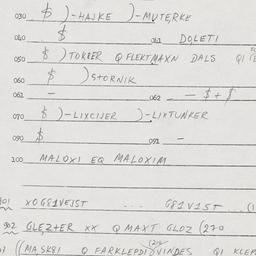 030 $ )-HAJKE )-MUTERKE
040 $ 041 DOLETI
050 $ )TOKRER Q FLEKTMAXN DALS QI
060 $ )STORNIK
061 - 062 - $ + $
070 $ )-LIXCIJER )-LIXTUNKER
090 $ 091 -
100 MALOXI EQ MALOXIM
901 X0681VEJST ... G81V15T (1
902 GLEZ+ER XX Q MAXT GLOZ (270
((MASK81 Q FARKLEPDI VINDES QI KLEP